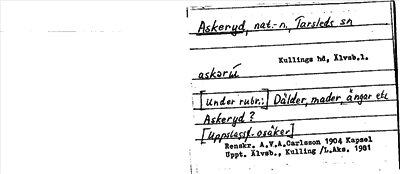 Askeryd, nat.-n., Tarsleds sn
Kullings hd, Älvsb.l.
askərú
[Under rubr.:] Dälder, mader, ängar etc
Askeryd ?
[Uppslagsf. osäker]
Renskr. A.V.A.Carlsson 1904 Kapsel
Uppt. Älvsb., Kulling /L.Aks. 1981